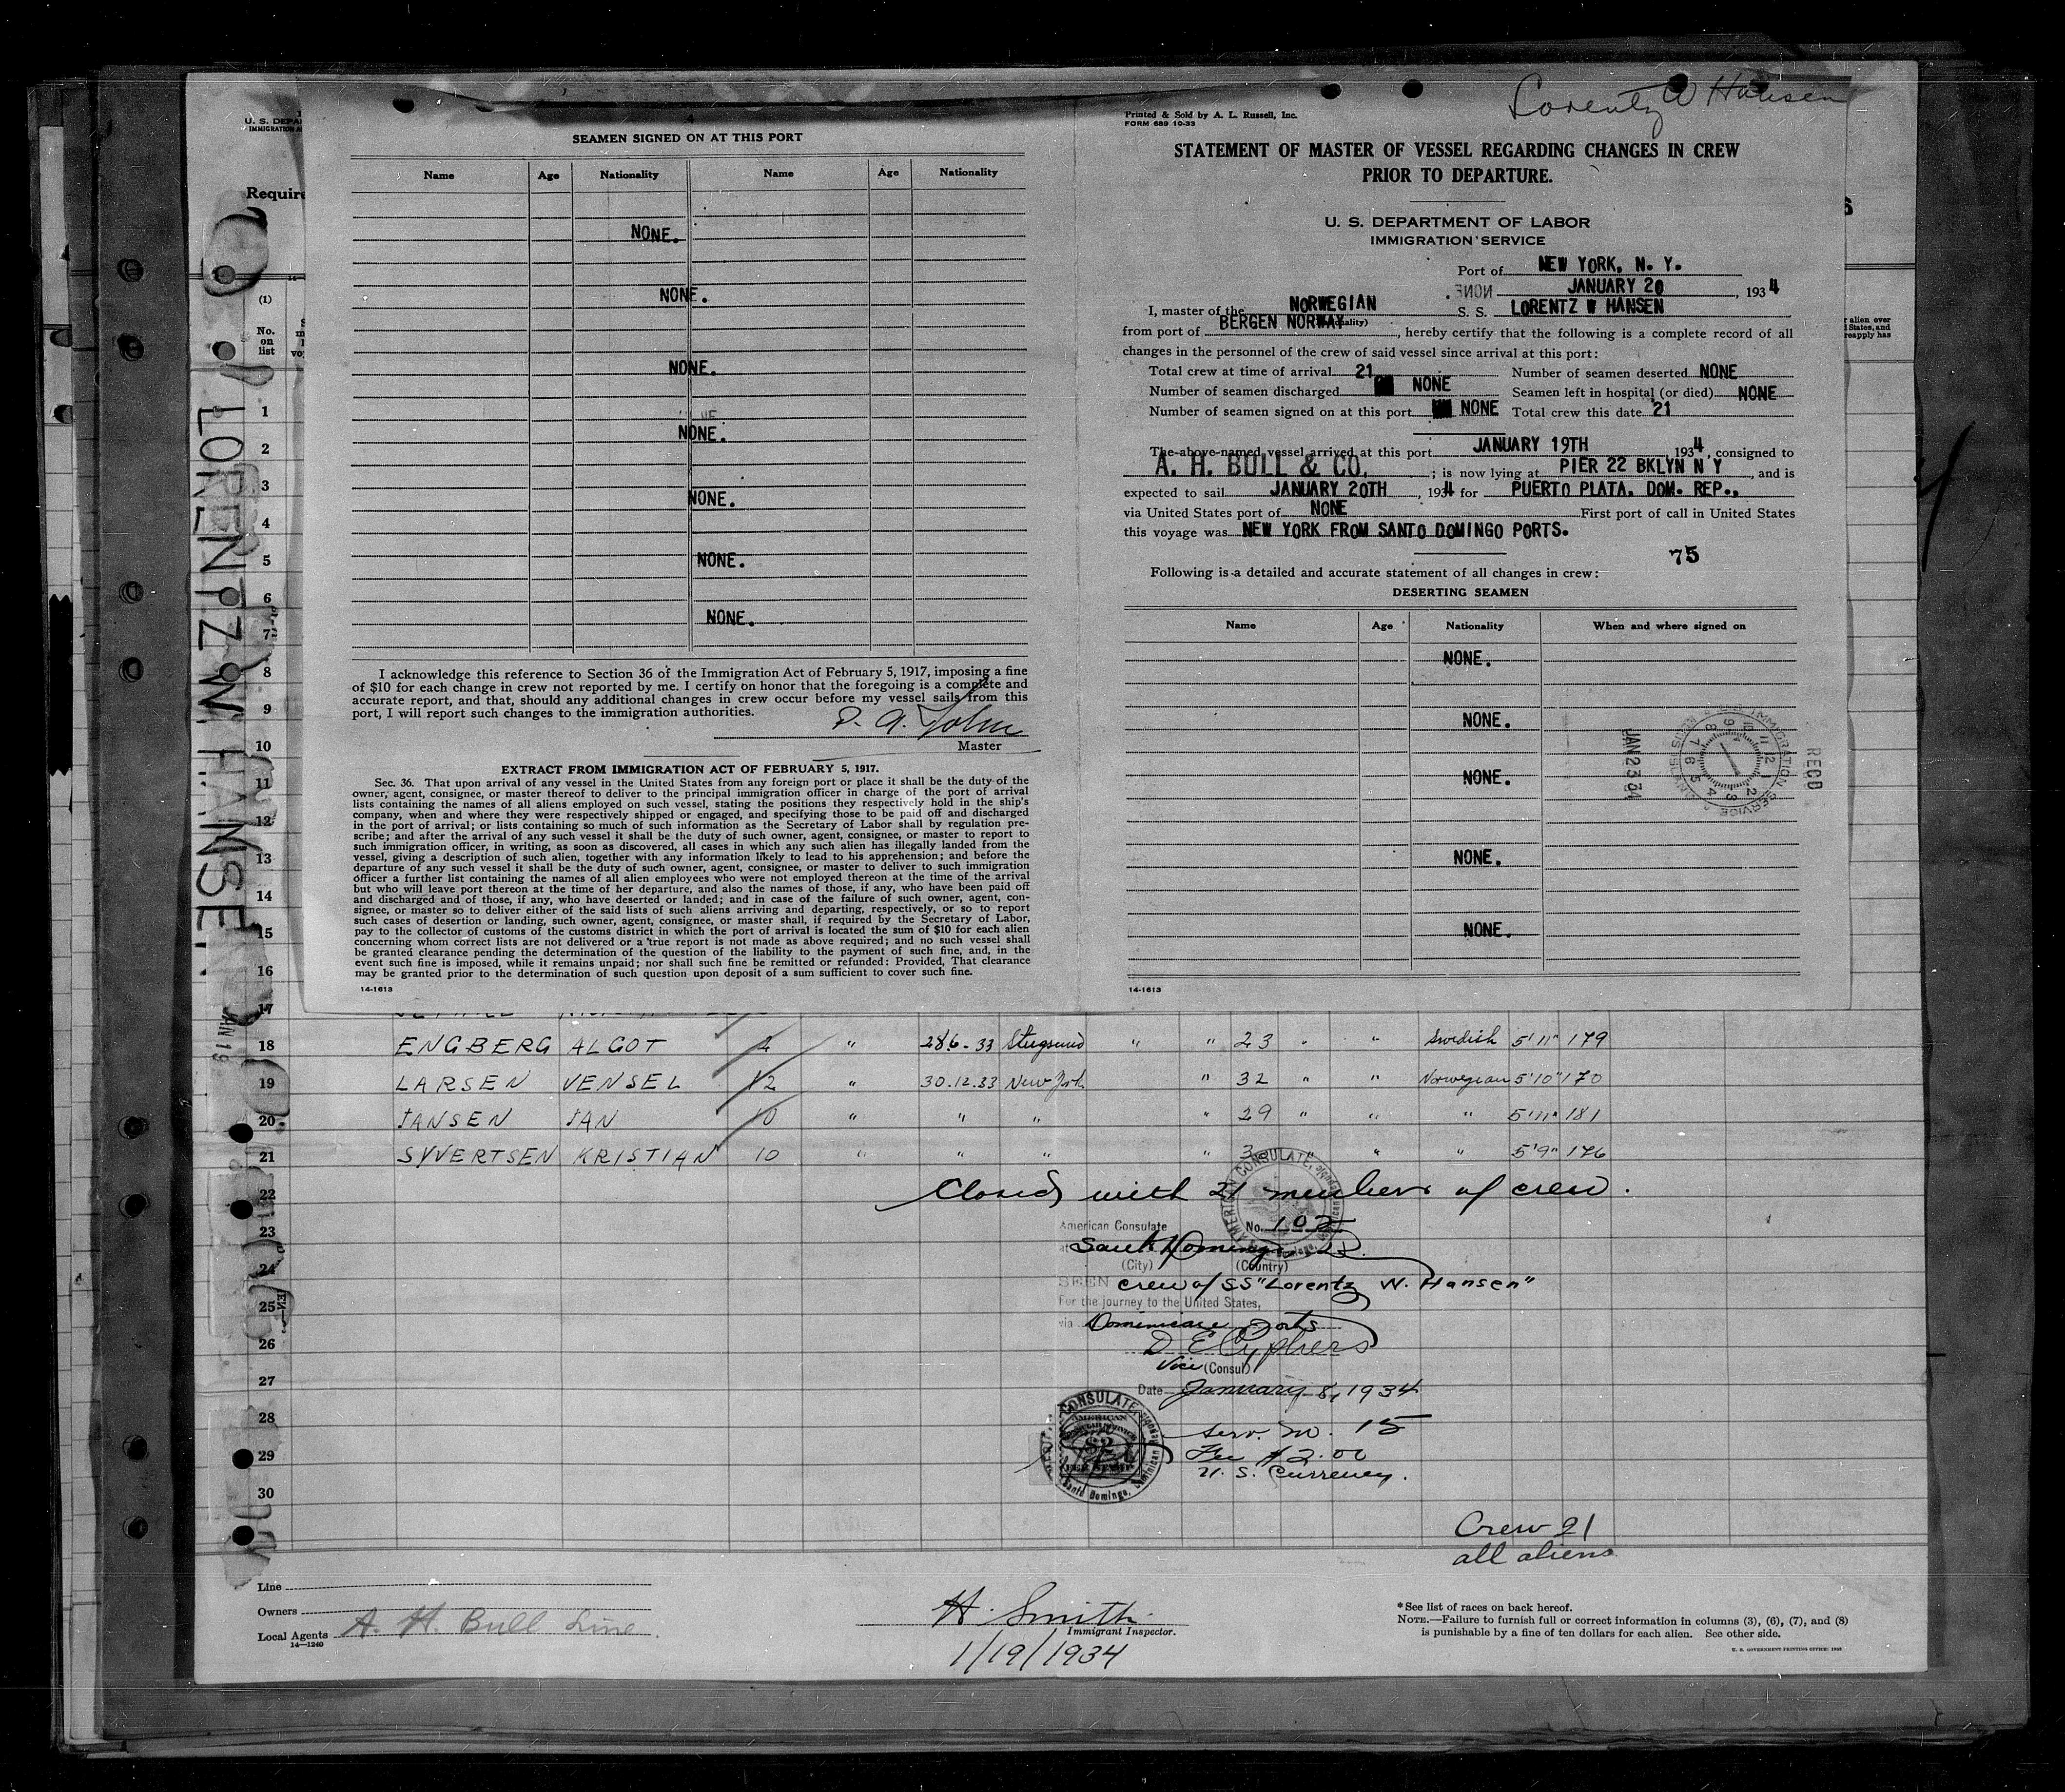 Lorentz W Hansen
SEAMEN SIGNED ON AT THIS PORT
Name Age Nationality Name Age Nationality
NONE.
NONE.
NONE.
NONE.
NONE.
NONE.
NONE.
I acknowledge this reference to Section 36 of the Immigration Act of February 5, 1917, imposing a fine
of $10 for each change in crew not reported by me. I certify on honor that the foregoing is a complete and
accurate report, and that, should any additional changes in crew occur before my vessel sails from this
port, I will report such changes to the immigration authorities.
Master
EXTRACT FROM IMMIGRATION ACT OF FEBRUARY 5, 1917.
Sec. 36. That upon arrival of any vessel in the United States from any foreign port or place it shall be the duty of the
owner, agent, consignee, or master thereof to deliver to the principal immigration officer in charge of the port of arrival
lists containing the names of all aliens employed on such vessel, stating the positions they respectively hold in the ship's
company, when and where they were respectively shipped or engaged, and specifying those to be paid off and discharged
in the port of arrival; or lists containing so much of such information as the Secretary of Labor shall by regulation pre-
scribe; and after the arrival of any such vessel it shall be the duty of such owner, agent, consignee, or master to report to
such immigration officer, in writing, as soon as discovered, all cases in which any such alien has illegally landed from the
vessel, giving a description of such alien, together with any information likely to lead to his apprehension; and before the
departure of any such vessel it shall be the duty of such owner, agent, consignee, or master to deliver to such immigration
officer a further list containing the names of all alien employees who were not employed thereon at the time of the arrival
but who will leave port thereon at the time of her departure, and also the names of those, if any, who have been paid off
and discharged and of those, if any, who have deserted or landed; and in case of the failure of such owner, agent, con-
signee, or master so to deliver either of the said lists of such aliens arriving and departing, respectively, or so to report
such cases of desertion or landing, such owner, agent, consignee, or master shall, if required by the Secretary of Labor,
pay to the collector of customs of the customs district in which the port of arrival is located the sum of $10 for each alien
concerning whom correct lists are not delivered or a true report is not made as above required; and no such vessel shall
be granted clearance pending the determination of the question of the liability to the payment of such fine, and, in the
event such fine is imposed, while it remains unpaid; nor shall such fine be remitted or refunded: Provided, That clearance
may be granted prior to the determination of such question upon deposit of a sum sufficient to cover such fine.
14-1613
Printed & Sold by A. L. Russell, Inc.
FORM 689 10-33
STATEMENT OF MASTER OF VESSEL REGARDING CHANGES IN CREW
PRIOR TO DEPARTURE.
U. S. DEPARTMENT OF LABOR
IMMIGRATION SERVICE
Port of NEW YORK, N. Y.
NONE. JANUARY 20, 1934
I, master of the NORWEGIAN S. S. LORENTZ W HANSEN
from port of BERGEN NORWAY, hereby certify that the following is a complete record of all
changes in the personnel of the crew of said vessel since arrival at this port:
Total crew at time of arrival 21 Number of seamen deserted NONE
Number of seamen discharged NONE Seamen left in hospital (or died) NONE
Number of seamen signed on at this port NONE Total crew this date 21
The above-named vessel arrived at this port JANUARY 19TH 1934, consigned to
A. H. BULL & CO. ; is now lying at PIER 22 BKLYN N Y, and is
expected to sail JANUARY 20TH, 1934 for PUERTO PLATA. DOM. REP.,
via United States port of NONE First port of call in United States
this voyage was NEW YORK FROM SANTO DOMINGO PORTS.
75
Following is a detailed and accurate statement of all changes in crew:
DESERTING SEAMEN
Name Age Nationality When and where signed on
NONE.
NONE.
NONE.
NONE.
NONE.
RECD
JAN 23 34
14-1613
U. S. DEPA
IMMIGRATION
Require
(1)
No.
on
list
r alien ever
States, and
reapply has
LORENTZ W. HANSEN.
1
2
3
4
5
6
7
8
9
10
11
12
13
14
15
16
17
18 ENGBERG ALGOT 4 " 28.6-33 " " 23 " " Swedish 5'11" 179
19 LARSEN VENSEL 12 " 30.12.33 New York " 32 " " Norwegian 5'10" 170
20 JANSEN JAN 10 " " " " 29 " " " 5'11" 181
21 SYVERTSEN KRISTIAN 10 " " " " " " " 5'9" 176
22 Closed with 21 members of crew.
23 American Consulate No. 102
24 (City) (Country)
SEEN crew of SS "Lorentz W. Hansen"
25 For the journey to the United States,
via Dominican Ports
26 D E Cyphers
Vice (Consul)
27 Date January 8, 1934
28 Serv. no. 15
29 Fee $2.00
U. S. Currency.
30
CONSULATE
Santo Domingo, Dominican
Crew 21
all aliens
Line
Owners
Local Agents A. H. Bull Line.
14-1240
H. Smith
Immigrant Inspector.
1/19/1934
* See list of races on back hereof.
NOTE.—Failure to furnish full or correct information in columns (3), (6), (7), and (8)
is punishable by a fine of ten dollars for each alien. See other side.